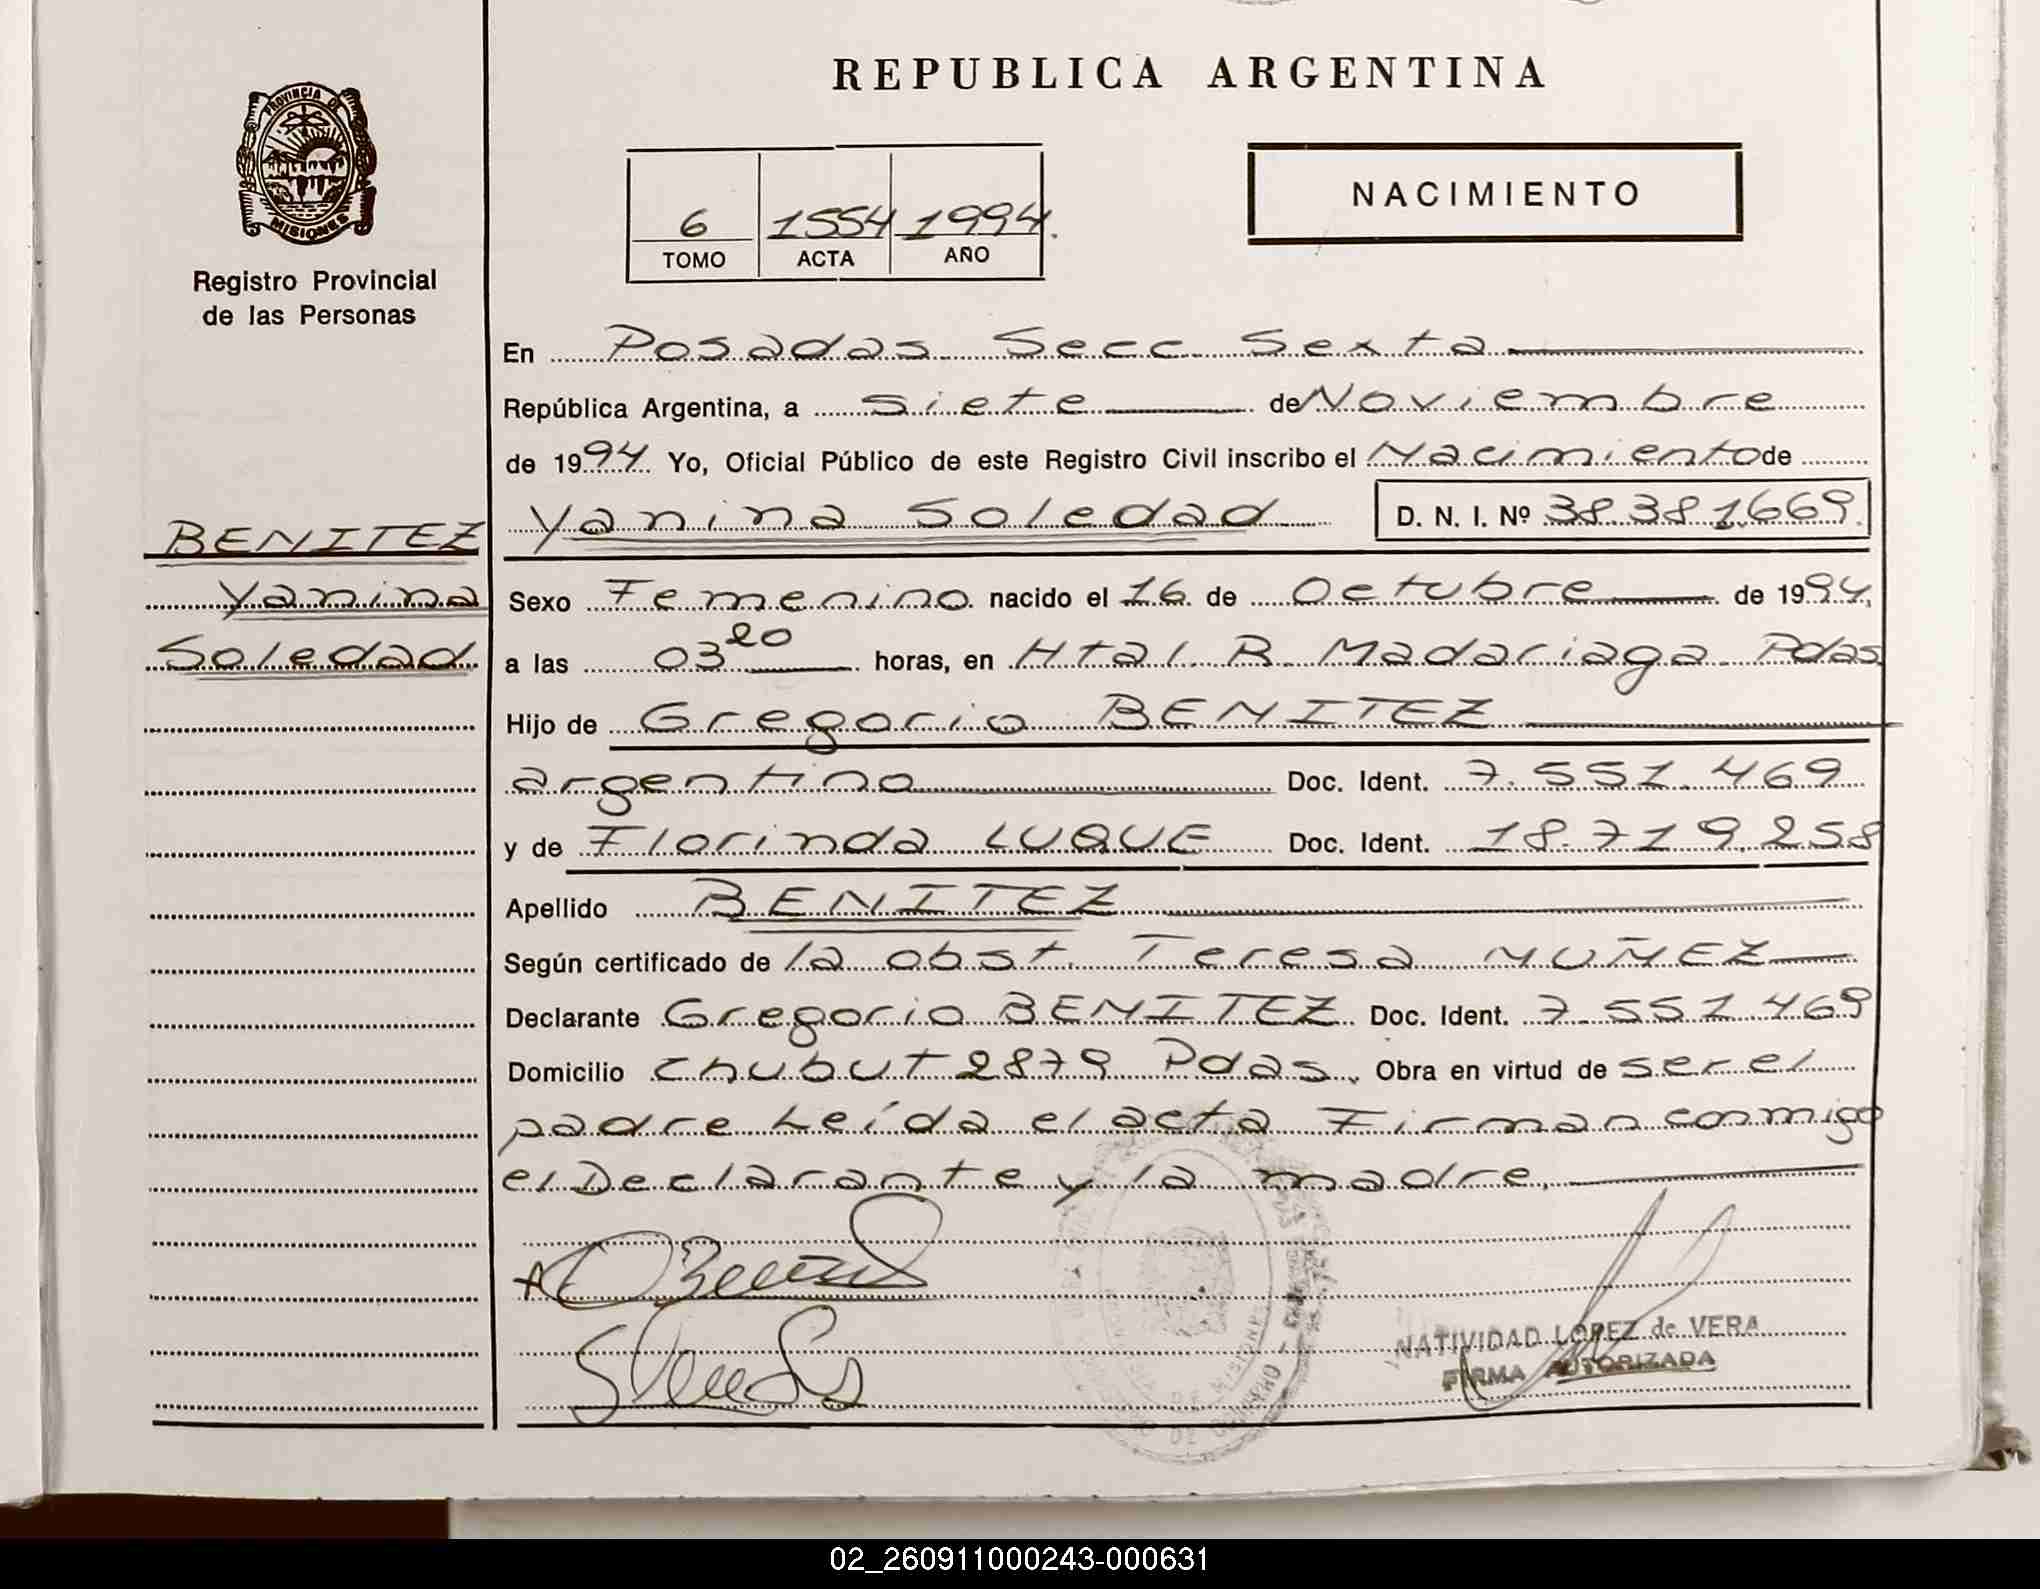 REPUBLICA ARGENTINA
PROVINCIA DE
MISIONES
Registro Provincial
de las Personas
NACIMIENTO
6 1554 1994.
TOMO ACTA AÑO
BENITEZ
Yanina
Soledad
En Posadas Secc Sexta
República Argentina, a siete de Noviembre
de 1994 Yo, Oficial Público de este Registro Civil inscribo el Nacimiento de
Yanina Soledad D. N. I. Nº 38.381.669
Sexo Femenino nacido el 16 de Octubre de 1994,
a las 03 20 horas, en Htal R. Madariaga Pdas
Hijo de Gregorio BENITEZ
argentino Doc. Ident. 7.551.469
y de Florinda LUQUE Doc. Ident. 18.719.258
Apellido BENITEZ
Según certificado de la obst. Teresa MUÑEZ
Declarante Gregorio BENITEZ Doc. Ident. 7.551.469
Domicilio Chubut 2879 Pdas. Obra en virtud de ser el
padre Leída el acta Firman conmigo
el Declarante y la madre.
NATIVIDAD LOPEZ de VERA
FIRMA AUTORIZADA
02_260911000243-000631